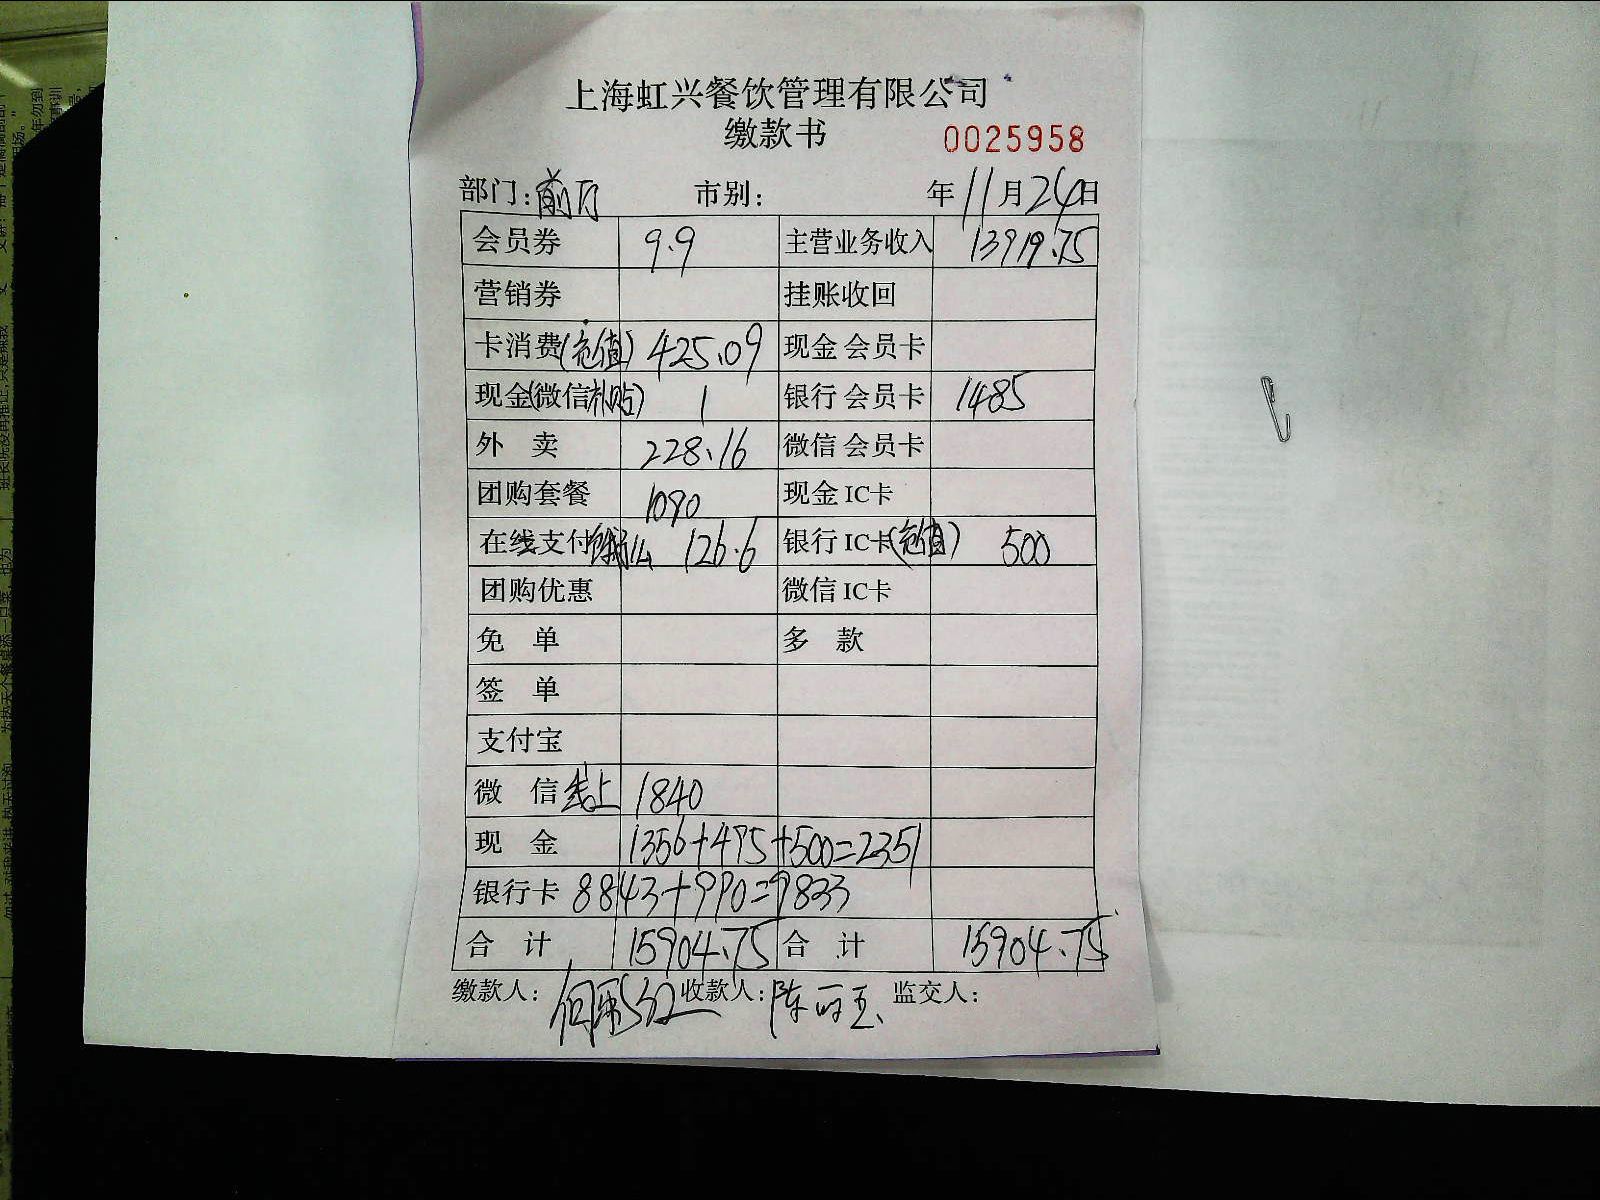 上海虹兴餐饮管理有限公司
缴款书 0025958
部门:前厅 市别: 年11月24日
会员券 9.9 主营业务收入 13919.75
营销券 挂账收回
卡消费(充值) 425.09 现金会员卡
现金(微信补贴) 1 银行会员卡 1485
外 卖 228.16 微信会员卡
团购套餐 1090 现金IC卡
在线支付饿了么 126.6 银行IC卡(充值) 500
团购优惠 微信IC卡
免 单 多 款
签 单
支付宝
微 信线上 1840
现 金 1356+495+500=2351
银行卡 8843+990=9833
合 计 15904.75 合 计 15904.75
缴款人: 收款人:陈 监交人: